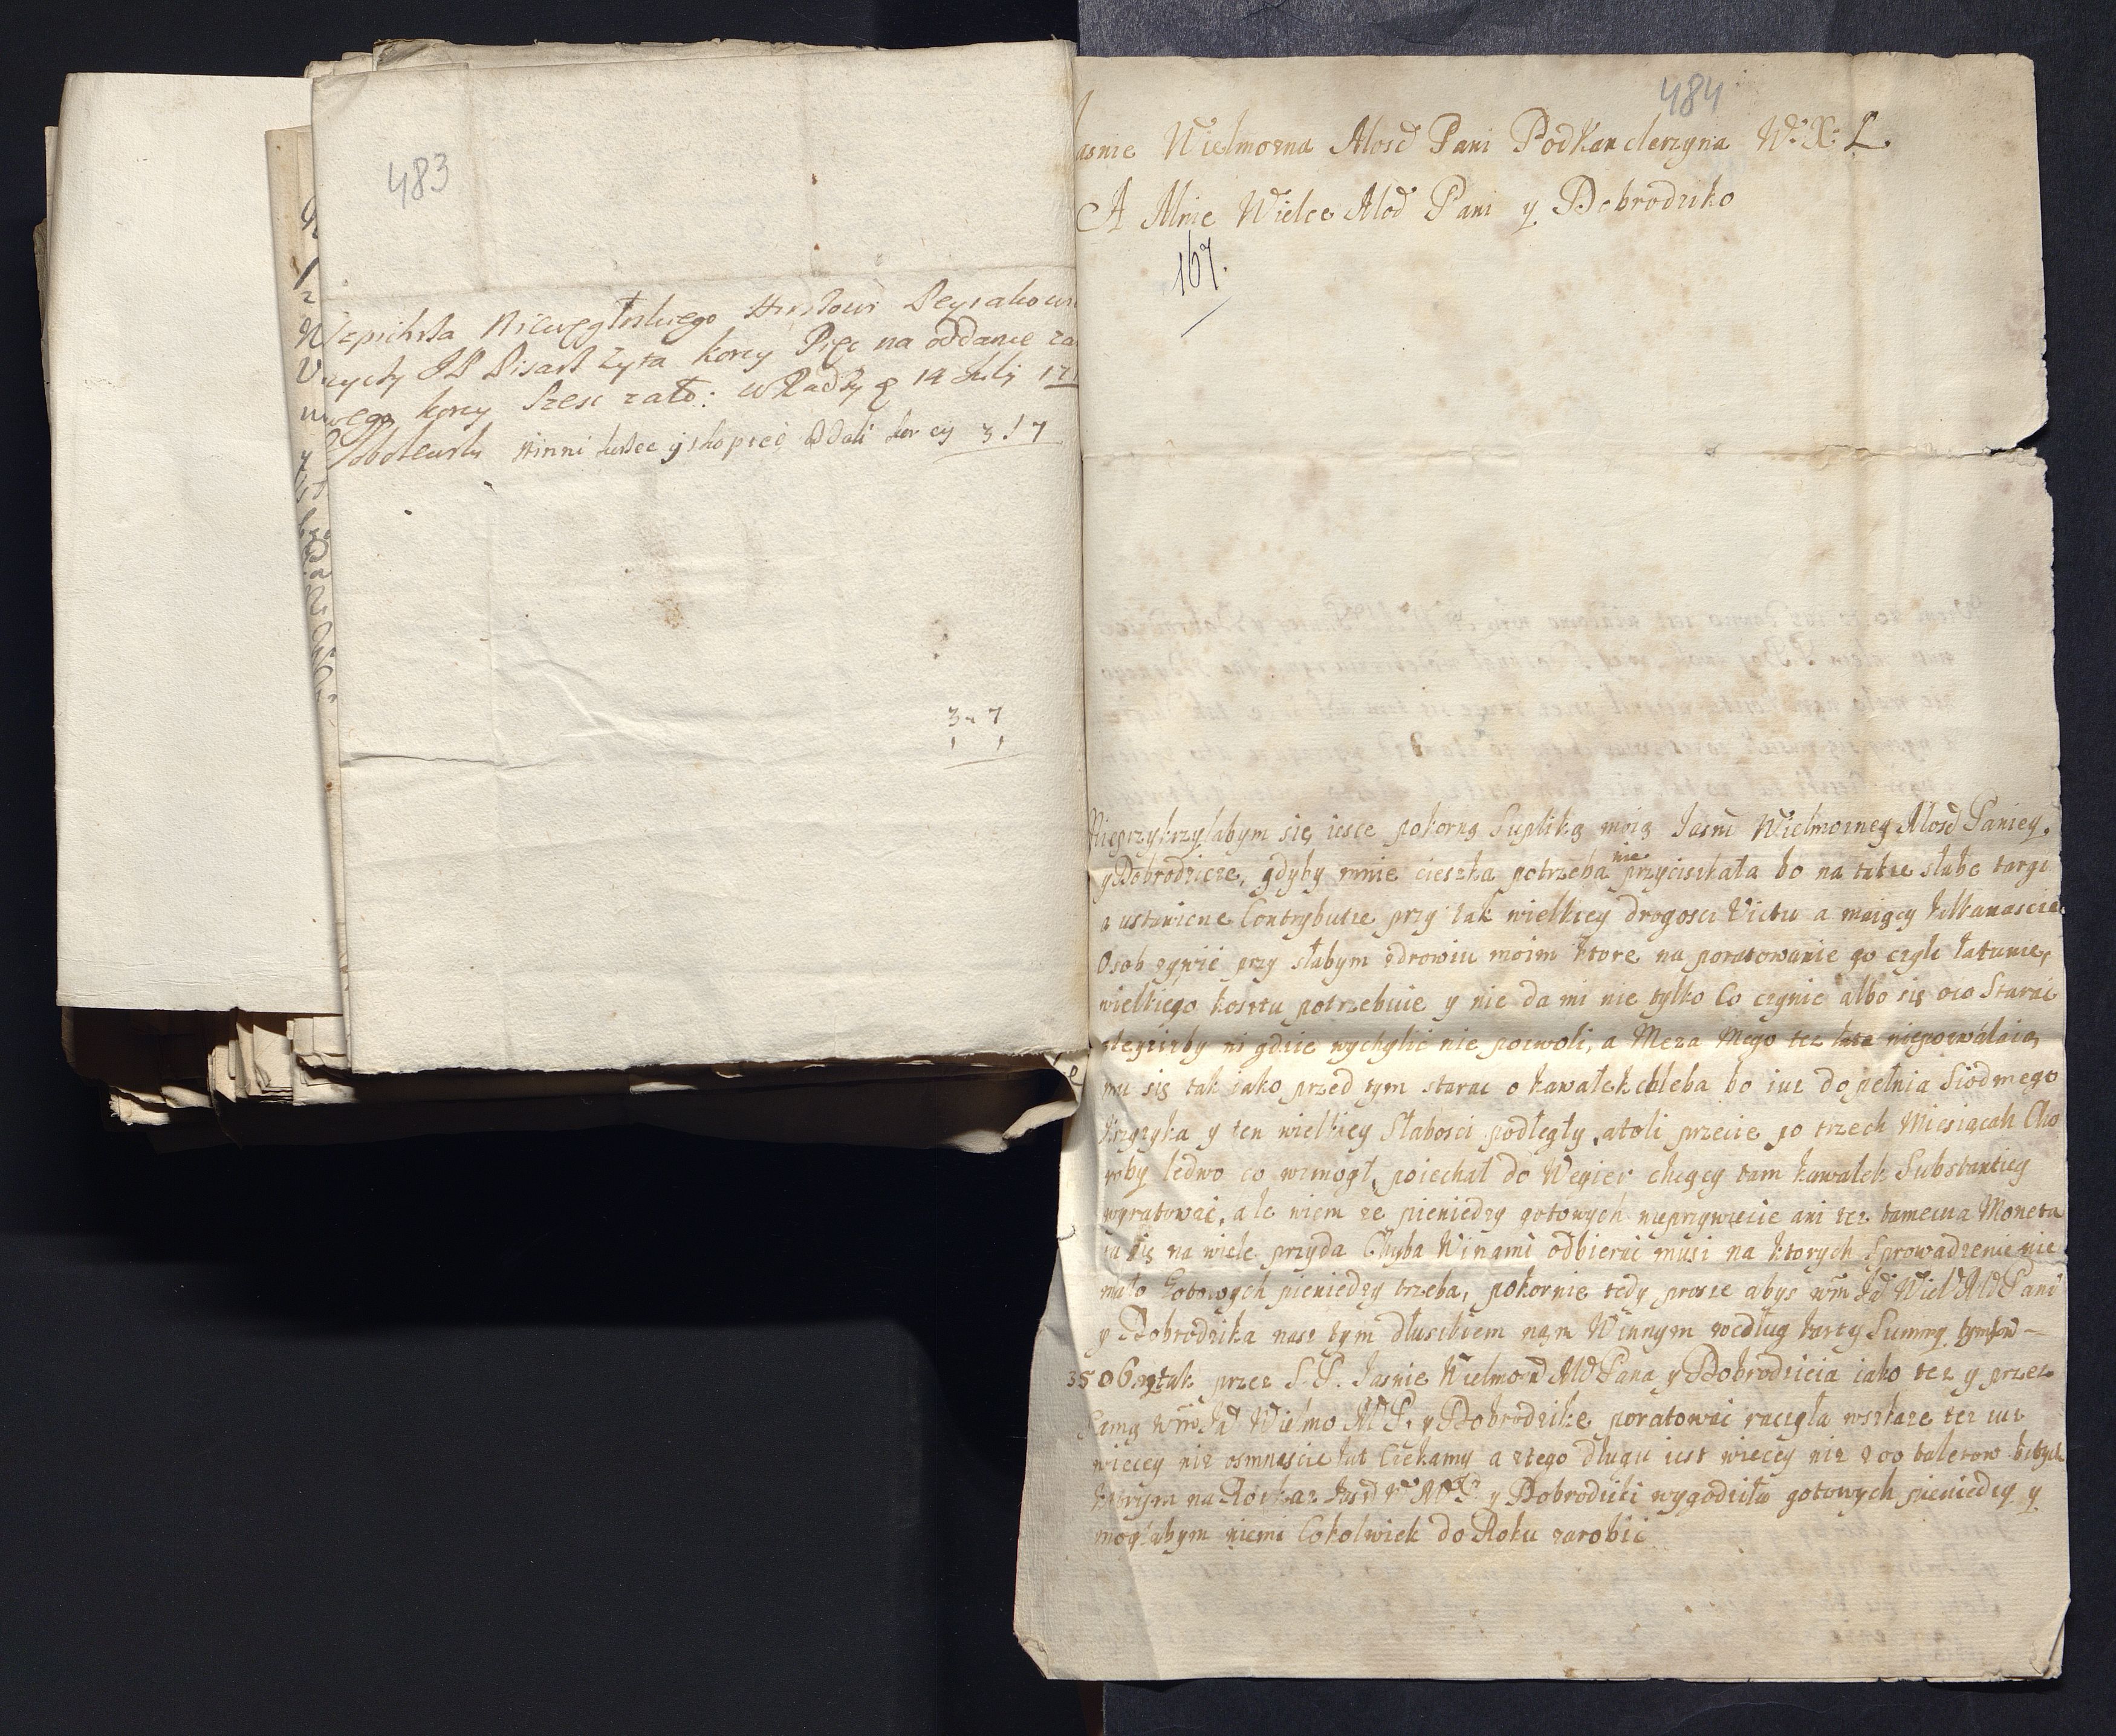 483
Szpichrza Niewęgłoskiego
Pisarz Zyta korcy Pięc na oddanie
korcy Szesc 14 Julij
korcy 3 ! 7
3 7
484
Jasnie Wielmozna Mosć Pani PodKanclerzyna W: X: L.
A Mnie Wielce Mość Pani y Dobrodziko
167.
Nieprzykrzyłabym się iesce pokorną Supliką moią Jasni Wielmozney Mosć Paniey
y Dobrodzicze, gdyby mnie cieszka potrzeba nie przyciskała bo na takie słabe targi
a ustawicne Contrybucie przy tak wielkiey drogosci Victu a maiący kilkanascie
Osob zywić przy słabym zdrowiu moim ktore na poratowanie go
wielkiego kosztu potrzebuie y nie da mi nie tylko Co czynic albo się oco Starac
ni gdzie wychylić nie pozwoli, a Męza Mego tez lata niepozwalaią
mu się tak iako przed tym starac o kawałek chleba bo iuz dopełnia Siodmego
Krzyzyka y ten wielkiey Słabosci podległy, atoli przecie po trzech Miesiącah Cho
roby ledwo co wzmogł, poiechał do Węgier chcący tam kawałek Substantiey
wyratować, ale wiem ze pieniedzy gotowych nieprzywiezie ani tez tameczna Moneta
tu się na wiele przyda Chyba Winami odbierać musi na ktorych Sprowadzenie nie
mało Gotowych pieniedzy trzeba, pokornie tedy prosze abys wm Ja Wiel Mć Pani
y Dobrodzika nasz tym dłuszkiem nam Winnym według karty Summy tynfow
3506 tak przez S. P. Jasnie Wielmo Mć Pana y Dobrodzicia iako tez y przez
Samą wm Ja Wielmo Mć P. y Dobrodzike poratować raczyła wszkaze tez iuz
wiecey niz osmnascie lat Czekamy a ztego długu iest wiecey niz 200 talerow bitych
ktorym na Roskaz y Dobrodziki wygodziła gotowych pieniedzy y
mogłabym niemi Cokolwiek do Roku zarobić